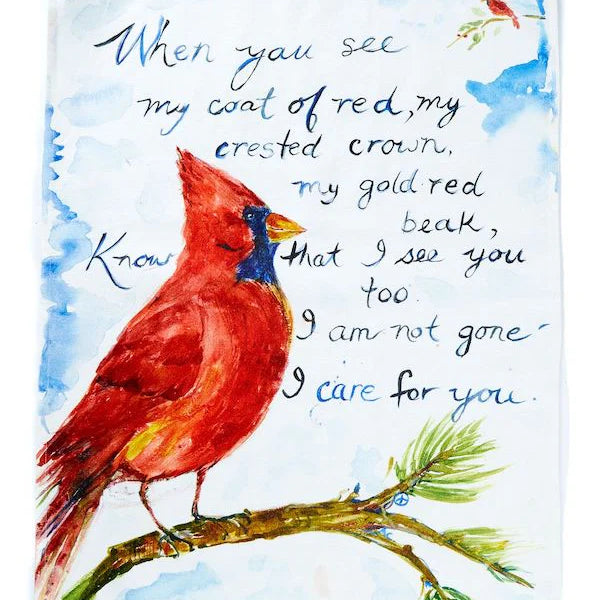 When you see
my coat of red, my
crested crown,
my gold red
beak,
Know that I see you
too.
I am not gone
I care for you.